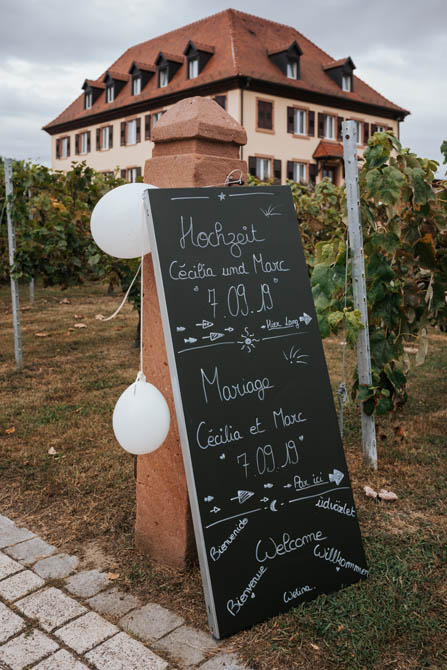 Hochzeit
Cécilia und Marc
7.09.19
Hier lang
Mariage
Cécilia et Marc
7.09.19
Par ici
Bienvenido
üdvözlet
Welcome
Willkommen
Bienvenue